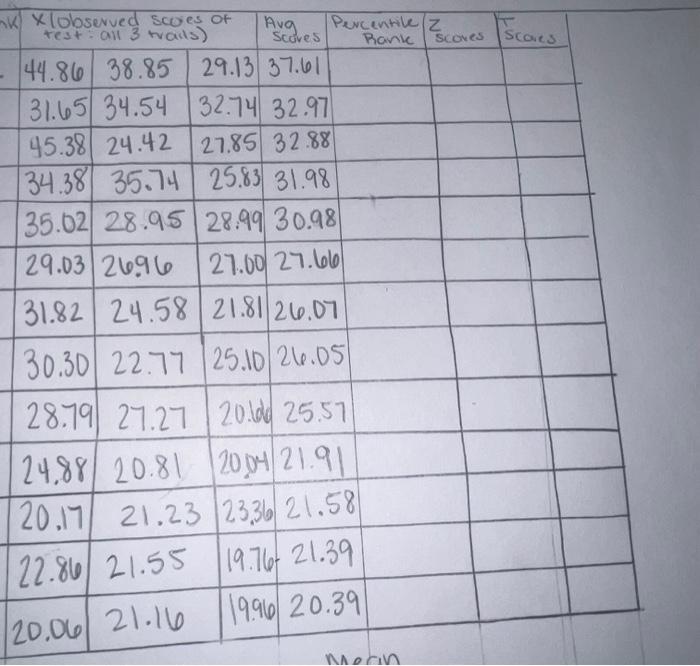 nk X (observed scores of test: all 3 trails) Avg Scores Percentile Rank Z scores T Scores
44.86 38.85 29.13 37.61
31.65 34.54 32.74 32.97
45.38 24.42 27.85 32.88
34.38 35.74 25.83 31.98
35.02 28.95 28.99 30.98
29.03 26.96 27.00 27.66
31.82 24.58 21.81 26.07
30.30 22.77 25.10 26.05
28.79 27.27 20.66 25.57
24.88 20.81 20.04 21.91
20.17 21.23 23.36 21.58
22.86 21.55 19.76 21.39
20.06 21.16 19.96 20.39
Mean